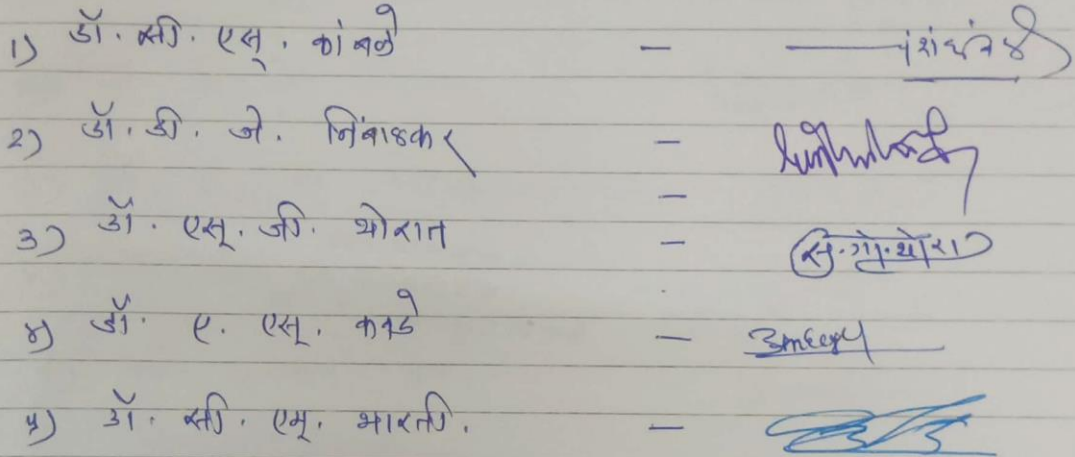 १) डॉ. सी. एस्. कांबळे -
२) डॉ. डी. जे. निंबाळकर -
-
३) डॉ. एस्. जी. थोरात - सु.गो.थोरात
४) डॉ. ए. एस्. कावडे -
५) डॉ. सी. एम्. भारती. -